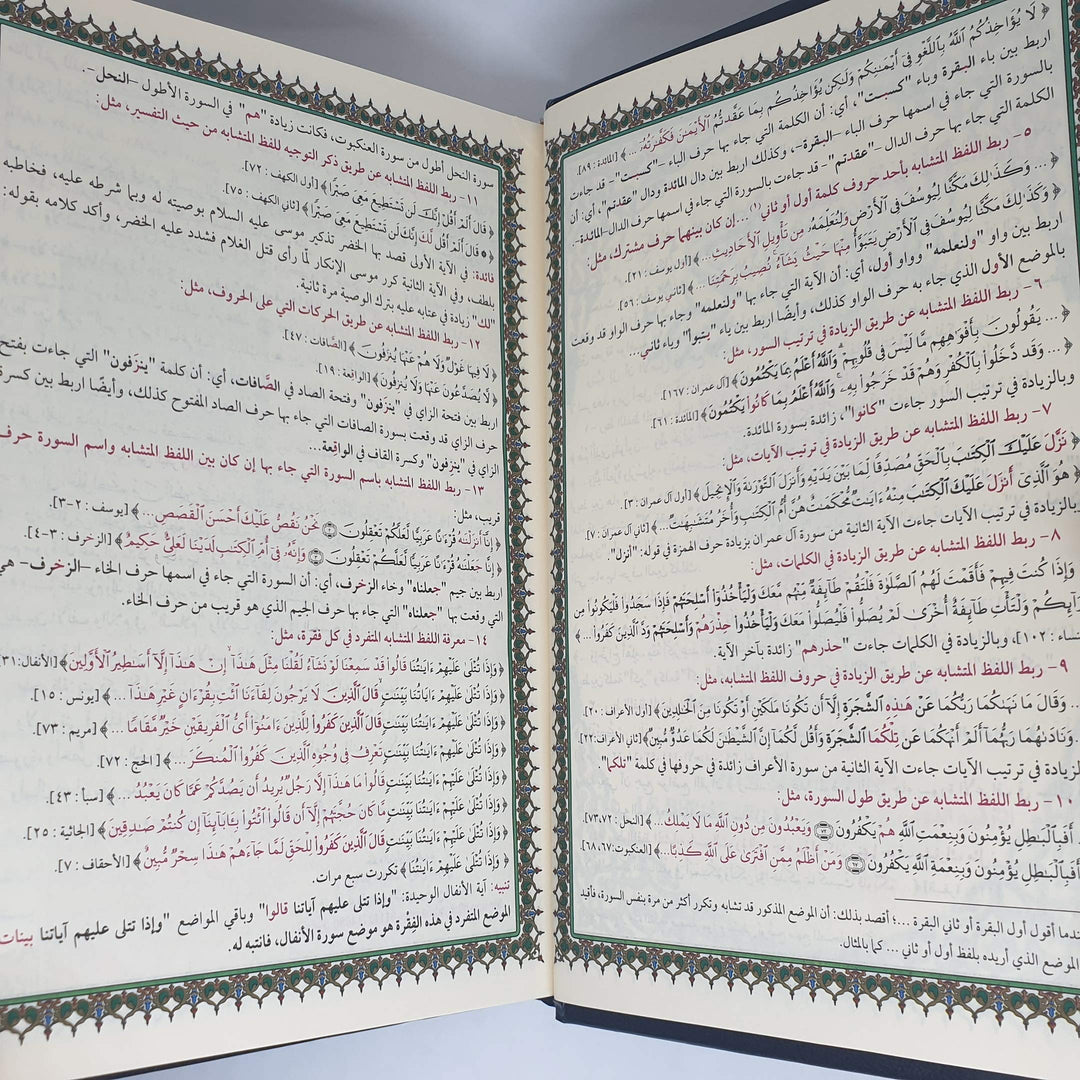 ﴿ لَا يُؤَاخِذُكُمُ اللَّهُ بِاللَّغْوِ فِي أَيْمَانِكُمْ وَلَكِن يُؤَاخِذُكُم بِمَا عَقَّدتُّمُ الْأَيْمَانَ فَكَفَّارَتُهُ...﴾ [المائدة : ٨٩].
اربط بين باء البقرة وباء "كسبت"، أي: أن الكلمة التي جاء بها حرف الباء -"كسبت"- قد جاءت
بالسورة التي جاء في اسمها حرف الباء -البقرة-، وكذلك اربط بين دال المائدة ودال "عقدتم"، أي: أن
الكلمة التي جاء بها حرف الدال -"عقدتم"- قد جاءت بالسورة التي جاء في اسمها حرف الدال -المائدة-.
٥- ربط اللفظ المتشابه بأحد حروف كلمة أول أو ثاني(١)... إن كان بينهما حرف مشترك، مثل:
﴿ ... وَكَذَلِكَ مَكَّنَّا لِيُوسُفَ فِي الْأَرْضِ وَلِنُعَلِّمَهُ مِن تَأْوِيلِ الْأَحَادِيثِ ...﴾ [أول يوسف : ٢١].
﴿ وَكَذَلِكَ مَكَّنَّا لِيُوسُفَ فِي الْأَرْضِ يَتَبَوَّأُ مِنْهَا حَيْثُ يَشَاءُ نُصِيبُ بِرَحْمَتِنَا ...﴾ [ثاني يوسف : ٥٦].
اربط بين واو "ولنعلمه" وواو أول، أي: أن الآية التي جاء بها "ولنعلمه" وجاء بها حرف الواو قد وقعت
بالموضع الأول الذي جاء به حرف الواو كذلك، وأيضًا اربط بين ياء "يتبوأ" وياء ثاني...
٦- ربط اللفظ المتشابه عن طريق الزيادة في ترتيب السور، مثل:
﴿ ... يَقُولُونَ بِأَفْوَاهِهِم مَّا لَيْسَ فِي قُلُوبِهِمْ وَاللَّهُ أَعْلَمُ بِمَا يَكْتُمُونَ﴾ [آل عمران : ١٦٧].
﴿ ... وَقَد دَّخَلُوا بِالْكُفْرِ وَهُمْ قَدْ خَرَجُوا بِهِ وَاللَّهُ أَعْلَمُ بِمَا كَانُوا يَكْتُمُونَ﴾ [المائدة : ٦١].
وبالزيادة في ترتيب السور جاءت "كانوا"، زائدة بسورة المائدة.
٧- ربط اللفظ المتشابه عن طريق الزيادة في ترتيب الآيات، مثل:
﴿ نَزَّلَ عَلَيْكَ الْكِتَابَ بِالْحَقِّ مُصَدِّقًا لِّمَا بَيْنَ يَدَيْهِ وَأَنزَلَ التَّوْرَاةَ وَالْإِنجِيلَ﴾ [أول آل عمران : ٣].
﴿ هُوَ الَّذِي أَنزَلَ عَلَيْكَ الْكِتَابَ مِنْهُ آيَاتٌ مُّحْكَمَاتٌ هُنَّ أُمُّ الْكِتَابِ وَأُخَرُ مُتَشَابِهَاتٌ ...﴾ [ثاني آل عمران : ٧].
بالزيادة في ترتيب الآيات جاءت الآية الثانية من سورة آل عمران بزيادة حرف الهمزة في قوله: "أنزل".
٨- ربط اللفظ المتشابه عن طريق الزيادة في الكلمات، مثل:
وَإِذَا كُنتَ فِيهِمْ فَأَقَمْتَ لَهُمُ الصَّلَاةَ فَلْتَقُمْ طَائِفَةٌ مِّنْهُم مَّعَكَ وَلْيَأْخُذُوا أَسْلِحَتَهُمْ فَإِذَا سَجَدُوا فَلْيَكُونُوا مِن
رَائِكُمْ وَلْتَأْتِ طَائِفَةٌ أُخْرَى لَمْ يُصَلُّوا فَلْيُصَلُّوا مَعَكَ وَلْيَأْخُذُوا حِذْرَهُمْ وَأَسْلِحَتَهُمْ وَدَّ الَّذِينَ كَفَرُوا ...﴾
نساء : ١٠٢]، وبالزيادة في الكلمات جاءت "حذرهم" زائدة بآخر الآية.
٩- ربط اللفظ المتشابه عن طريق الزيادة في حروف اللفظ المتشابه، مثل:
... وَقَالَ مَا نَهَاكُمَا رَبُّكُمَا عَنْ هَذِهِ الشَّجَرَةِ إِلَّا أَن تَكُونَا مَلَكَيْنِ أَوْ تَكُونَا مِنَ الْخَالِدِينَ﴾ [أول الأعراف : ٢٠].
..وَنَادَاهُمَا رَبُّهُمَا أَلَمْ أَنْهَكُمَا عَن تِلْكُمَا الشَّجَرَةِ وَأَقُل لَّكُمَا إِنَّ الشَّيْطَانَ لَكُمَا عَدُوٌّ مُّبِينٌ﴾ [ثاني الأعراف : ٢٢]
الزيادة في ترتيب الآيات جاءت الآية الثانية من سورة الأعراف زائدة في حروفها في كلمة "تلكما".
١٠- ربط اللفظ المتشابه عن طريق طول السورة، مثل:
... أَفَبِالْبَاطِلِ يُؤْمِنُونَ وَبِنِعْمَتِ اللَّهِ هُمْ يَكْفُرُونَ ﴿٧٢﴾ وَيَعْبُدُونَ مِن دُونِ اللَّهِ مَا لَا يَمْلِكُ ...﴾ [النحل : ٧٢، ٧٣].
أَفَبِالْبَاطِلِ يُؤْمِنُونَ وَبِنِعْمَةِ اللَّهِ يَكْفُرُونَ ﴿٦٧﴾ وَمَنْ أَظْلَمُ مِمَّنِ افْتَرَى عَلَى اللَّهِ كَذِبًا ...﴾ [العنكبوت : ٦٧، ٦٨].
ندما أقول أول البقرة أو ثاني البقرة ...؛ أقصد بذلك: أن الموضع المذكور قد تشابه وتكرر أكثر من مرة بنفس السورة، فأقيد
الموضع الذي أريده بلفظ أول أو ثاني ... كما بالمثال.
سورة النحل أطول من سورة العنكبوت، فكانت زيادة "هم" في السورة الأطول -النحل-.
١١- ربط اللفظ المتشابه عن طريق ذكر التوجيه للفظ المتشابه من حيث التفسير، مثل:
﴿ قَالَ أَلَمْ أَقُلْ إِنَّكَ لَن تَسْتَطِيعَ مَعِيَ صَبْرًا ﴾ [أول الكهف : ٧٢].
﴿ قَالَ أَلَمْ أَقُل لَّكَ إِنَّكَ لَن تَسْتَطِيعَ مَعِيَ صَبْرًا ﴾ [ثاني الكهف : ٧٥].
فائدة: في الآية الأولى قصد بها الخضر تذكير موسى عليه السلام بوصيته له وبما شرطه عليه، فخاطبه
بلطف، وفي الآية الثانية كرر موسى الإنكار لما رأى قتل الغلام فشدد عليه الخضر، وأكد كلامه بقوله:
"لك" زيادة في عتابه عليه بترك الوصية مرة ثانية.
١٢- ربط اللفظ المتشابه عن طريق الحركات التي على الحروف، مثل:
﴿ لَا فِيهَا غَوْلٌ وَلَا هُمْ عَنْهَا يُنزَفُونَ﴾ [الصافات : ٤٧].
﴿ لَا يُصَدَّعُونَ عَنْهَا وَلَا يُنزِفُونَ﴾ [الواقعة : ١٩].
اربط بين فتحة الزاي في "ينزَفون" وفتحة الصاد في الصَّافات، أي: أن كلمة "ينزَفون" التي جاءت بفتح
حرف الزاي قد وقعت بسورة الصافات التي جاء بها حرف الصاد المفتوح كذلك، وأيضًا اربط بين كسرة
الزاي في "ينزِفون" وكسرة القاف في الواقِعة...
١٣- ربط اللفظ المتشابه باسم السورة التي جاء بها إن كان بين اللفظ المتشابه واسم السورة حرف
قريب، مثل:
﴿ إِنَّا أَنزَلْنَاهُ قُرْآنًا عَرَبِيًّا لَّعَلَّكُمْ تَعْقِلُونَ ﴿٢﴾ نَحْنُ نَقُصُّ عَلَيْكَ أَحْسَنَ الْقَصَصِ ...﴾ [يوسف : ٢-٣].
﴿ إِنَّا جَعَلْنَاهُ قُرْآنًا عَرَبِيًّا لَّعَلَّكُمْ تَعْقِلُونَ ﴿٣﴾ وَإِنَّهُ فِي أُمِّ الْكِتَابِ لَدَيْنَا لَعَلِيٌّ حَكِيمٌ﴾ [الزخرف : ٣-٤].
اربط بين جيم "جعلناه" وخاء الزخرف، أي: أن السورة التي جاء في اسمها حرف الخاء -الزخرف- هي
التي وقعت بها "جعلناه" التي جاء بها حرف الجيم الذي هو قريب من حرف الخاء.
١٤- معرفة اللفظ المتشابه المتفرد في كل فقرة، مثل:
﴿وَإِذَا تُتْلَى عَلَيْهِمْ آيَاتُنَا قَالُوا قَدْ سَمِعْنَا لَوْ نَشَاءُ لَقُلْنَا مِثْلَ هَذَا إِنْ هَذَا إِلَّا أَسَاطِيرُ الْأَوَّلِينَ﴾ [الأنفال : ٣١]
﴿وَإِذَا تُتْلَى عَلَيْهِمْ آيَاتُنَا بَيِّنَاتٍ قَالَ الَّذِينَ لَا يَرْجُونَ لِقَاءَنَا ائْتِ بِقُرْآنٍ غَيْرِ هَذَا ...﴾ [يونس : ١٥].
﴿وَإِذَا تُتْلَى عَلَيْهِمْ آيَاتُنَا بَيِّنَاتٍ قَالَ الَّذِينَ كَفَرُوا لِلَّذِينَ آمَنُوا أَيُّ الْفَرِيقَيْنِ خَيْرٌ مَّقَامًا ...﴾ [مريم : ٧٣].
﴿وَإِذَا تُتْلَى عَلَيْهِمْ آيَاتُنَا بَيِّنَاتٍ تَعْرِفُ فِي وُجُوهِ الَّذِينَ كَفَرُوا الْمُنكَرَ ...﴾ [الحج : ٧٢].
﴿وَإِذَا تُتْلَى عَلَيْهِمْ آيَاتُنَا بَيِّنَاتٍ قَالُوا مَا هَذَا إِلَّا رَجُلٌ يُرِيدُ أَن يَصُدَّكُمْ عَمَّا كَانَ يَعْبُدُ ...﴾ [سبأ : ٤٣].
﴿وَإِذَا تُتْلَى عَلَيْهِمْ آيَاتُنَا بَيِّنَاتٍ مَّا كَانَ حُجَّتَهُمْ إِلَّا أَن قَالُوا ائْتُوا بِآبَائِنَا إِن كُنتُمْ صَادِقِينَ﴾ [الجاثية : ٢٥].
﴿وَإِذَا تُتْلَى عَلَيْهِمْ آيَاتُنَا بَيِّنَاتٍ قَالَ الَّذِينَ كَفَرُوا لِلْحَقِّ لَمَّا جَاءَهُمْ هَذَا سِحْرٌ مُّبِينٌ﴾ [الأحقاف : ٧].
﴿ وَإِذَا تُتْلَى عَلَيْهِمْ آيَاتُنَا﴾ تكررت سبع مرات.
تنبيه: آية الأنفال الوحيدة: "وإذا تتلى عليهم آياتنا قالوا" وباقي المواضع "وإذا تتلى عليهم آياتنا بينات
الموضع المتفرد في هذه الفِقْرة هو موضع سورة الأنفال، فانتبه له.